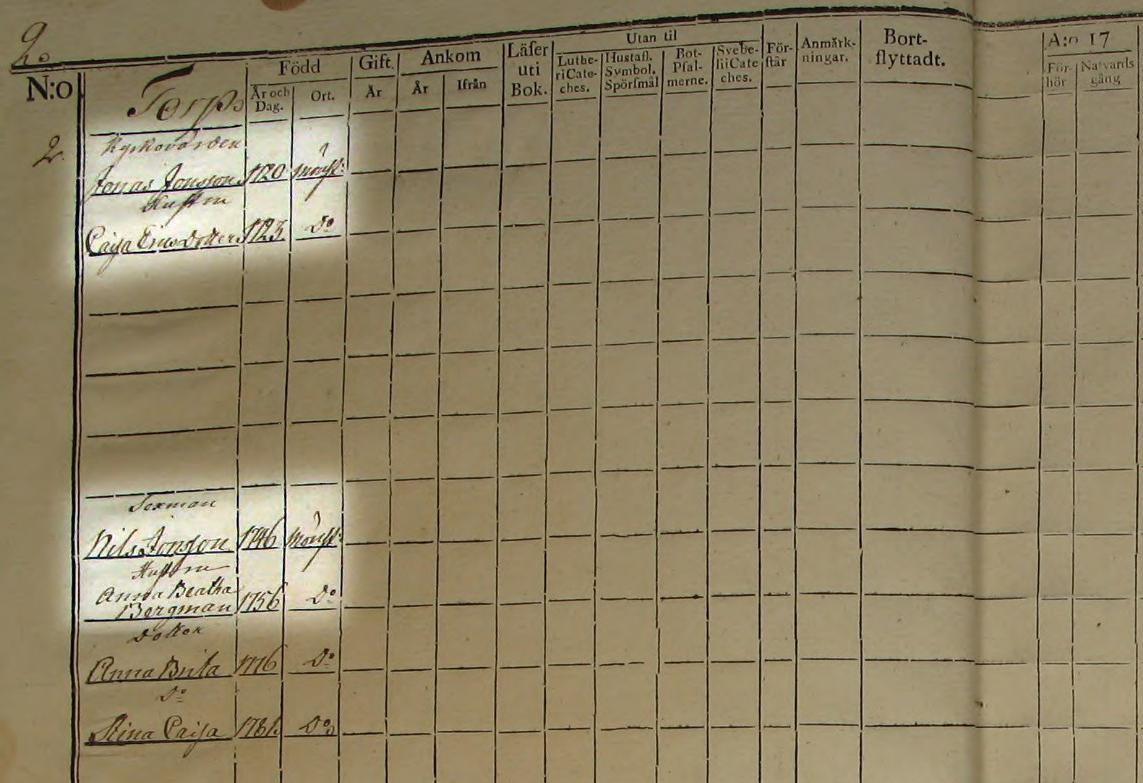 2.
N:o
Torp
Född
År och Dag.
Ort.
Gift
År
Ankom
År
Ifrån
Läser uti Bok.
Utan til
Luthe-
ri Cate-
ches.
Hustafl.
Symbol.
Spörsmål
Bot-
Psal-
merne.
Svebe-
lii Cate-
ches.
För-
står
Anmärk-
ningar.
Bort-
flyttadt.
A:o 17
För-
hör
Natvards
gång
2.
Kyrkovärden
Jonas Jonsson 1720
Hustru
Cajsa Ersdotter 1723 Do
Sexman
Nils Jonsson 1746
Hustru
Anna Beatha
Bergman 1756 Do
Dotter
Anna Brita 1776 Do
Do
Stina Cajsa 1781 Do